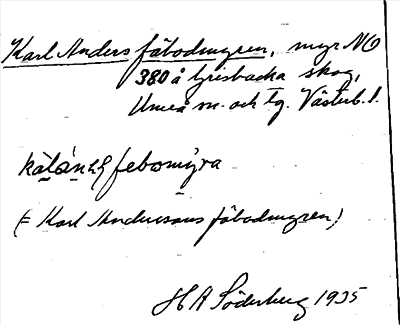 Karl Anders fäbodmyren, myr NO
380 å Grisbacka skog,
Umeå sn. och tg. Västerb. l.
febomýra
(= Karl Anderssons fäbodmyren)
H A Söderberg 1935